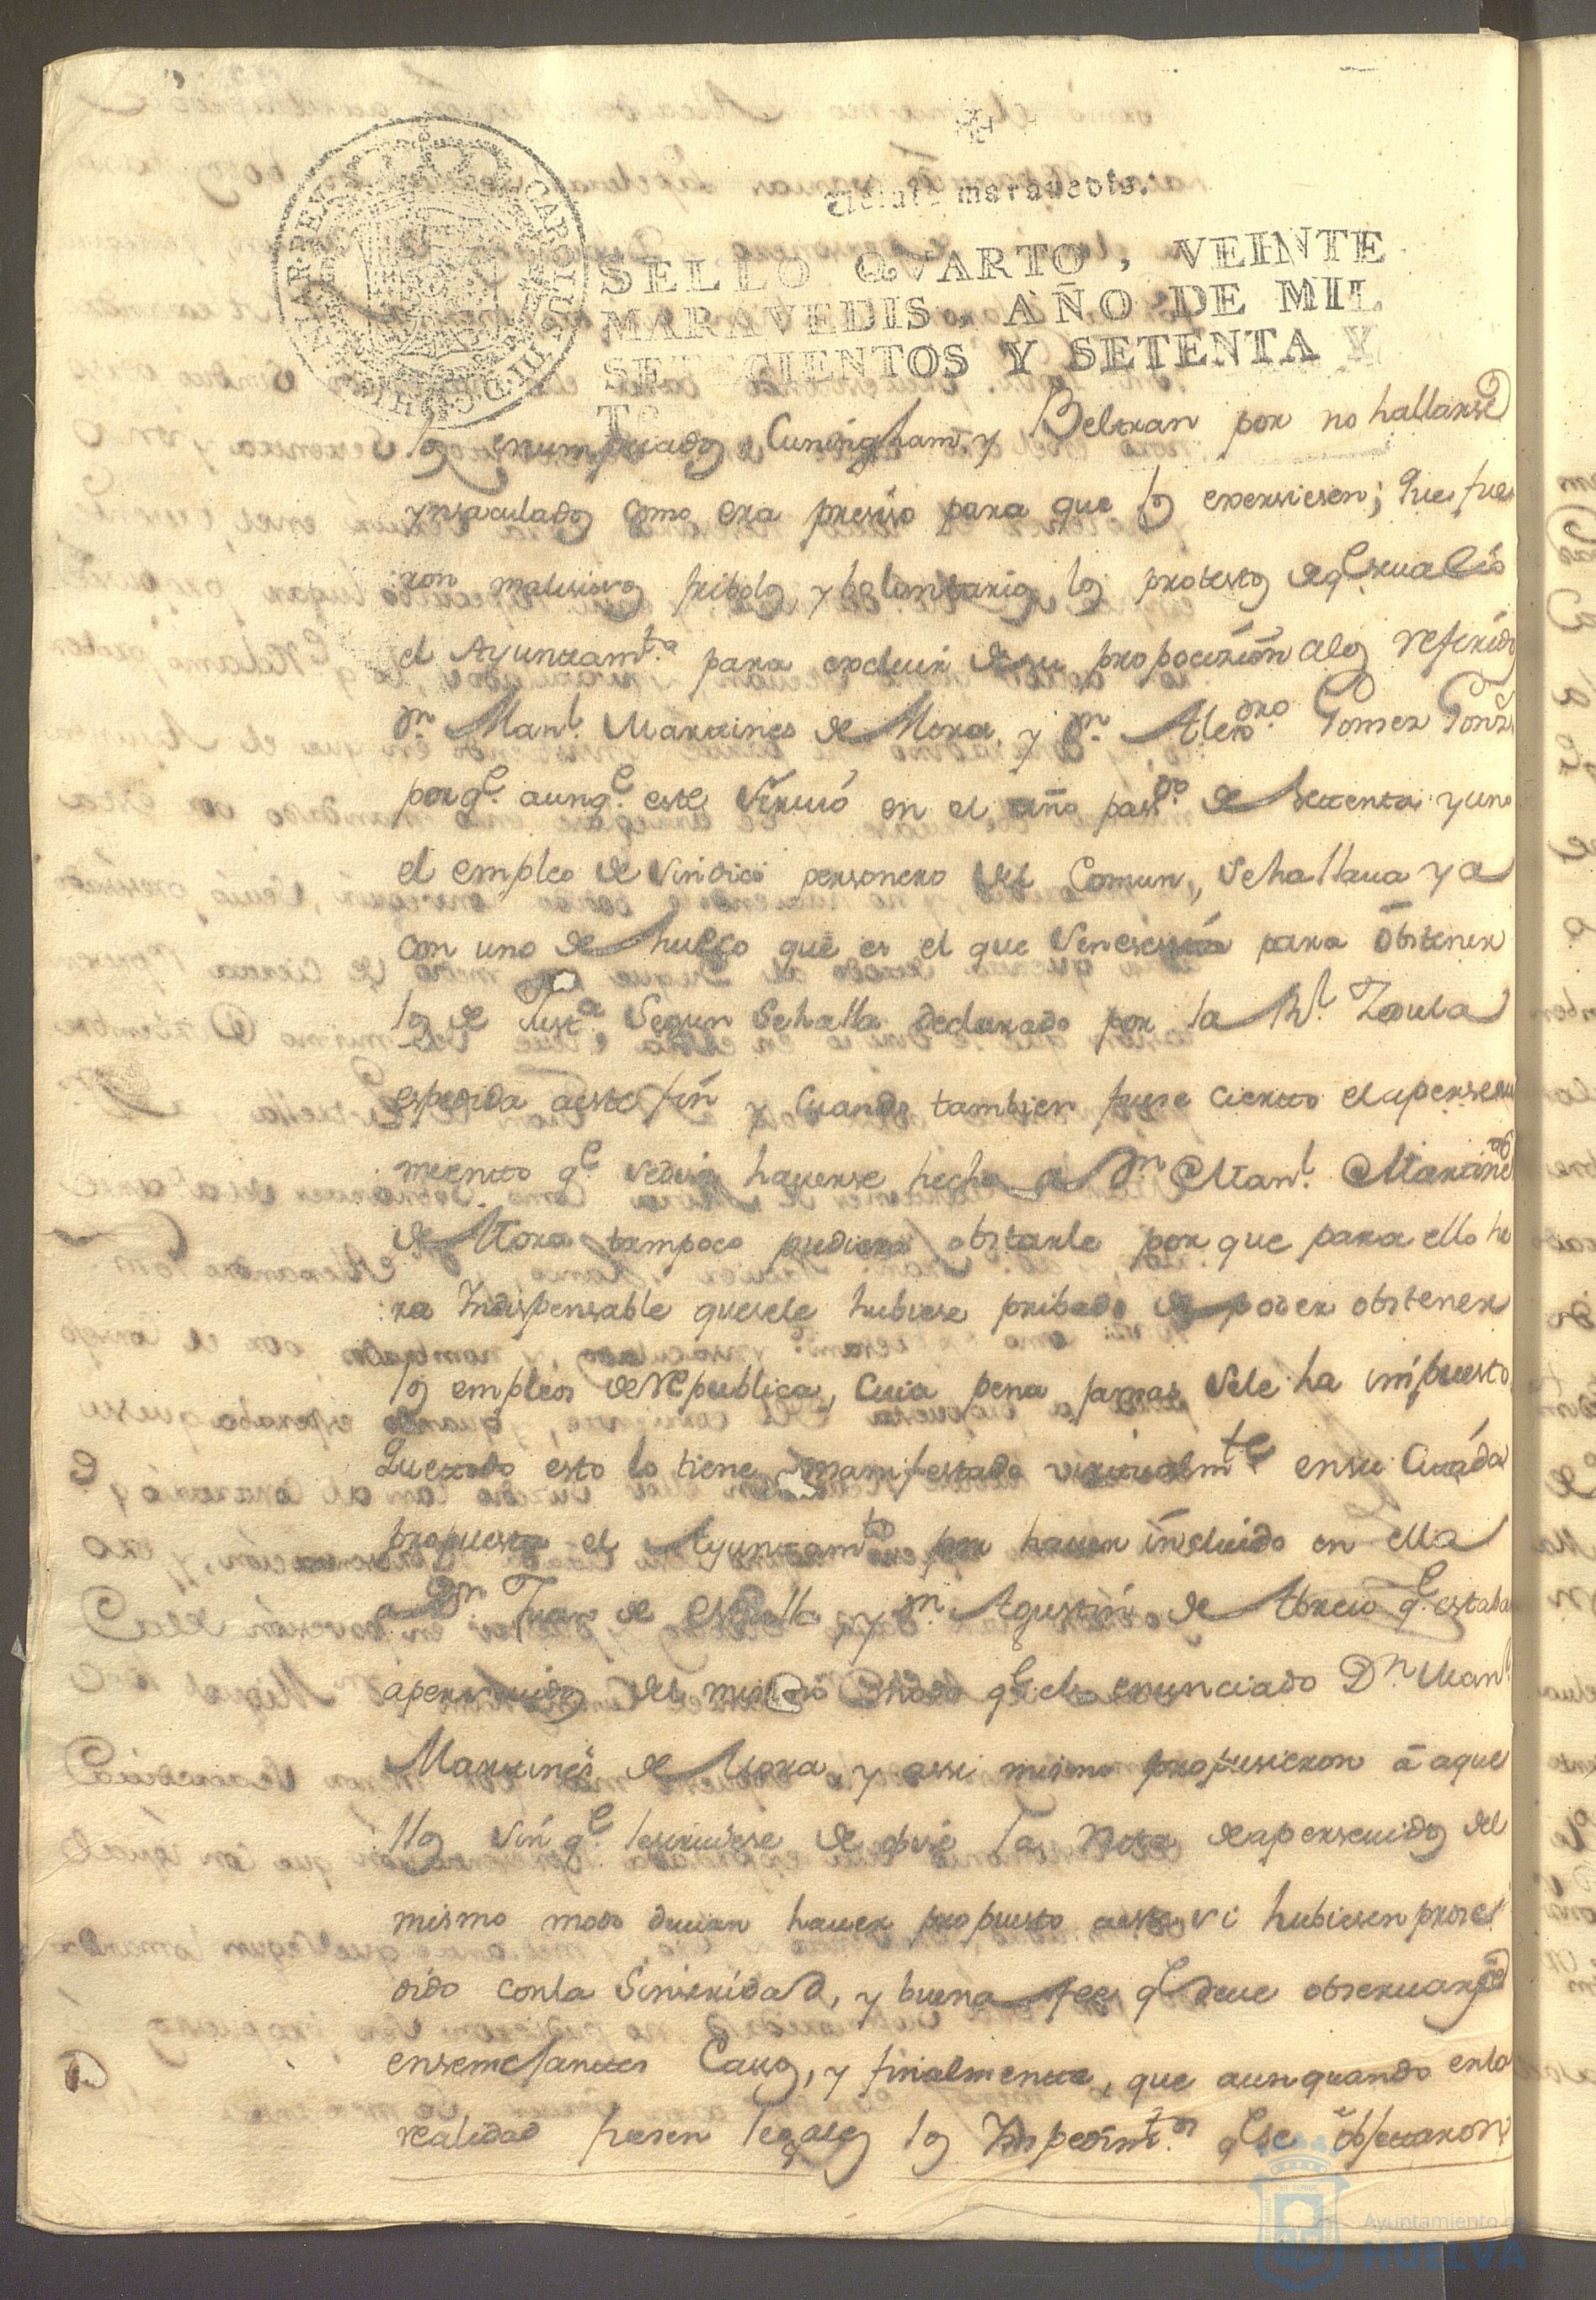 Veinte maravedis.
SELLO QVARTO, VEINTE
MARAVEDIS, AÑO DE MIL
SETECIENTOS Y SETENTA Y
los enumpciados Cuningham, y Beltran por no hallarse
ynsaculados como era presiso para que los exersiesen; Que fue
ron maliciosos fribolos, y boluntarios los protestos de q.e se ualió
el Ayuntam.to para excluir de su propocición alos referidos
Dn. Manl. Martines de Mora, y Dn. Alexdro. Gomez Gonz
porq.e aunq.e este siruió en el año pasdo. de setenta y uno
el empleo de sindico personero del Comun, se hallaua ya
con uno de hueco que es el que se nesesita para obtener
los de Justa. segun se halla declarado por la Rl. Zedula
espedida a este fin y cuando tambien fuese cierto el aperseui
miento q.e se desia hauerse hecho a Dn. Manl. Martines
de Mora tampoco pudiera obstarle por que para ello he
ra Indispensable que se le hubiese pribado de poder obtener
los empleos de Republica, cuia pena jamas se le ha impuesto
Que todo esto lo tiene manifestado virtualmte. en su citáda
propuesta el Ayuntamto. por hauer incluido en ella
a Dn. Juan de Estrella y Dn. Agustin de Abreio q.e estaban
aperseuidos del mismo modo q.e el enunciado Dn. Manl.
Martines de Mora, y assi mismo propusieron á aque
llos sin q.e les siruiese de obise la Nota de aperseuidos del
mismo modo deuian hauer propuesto a este si hubiesen prose
dido con la sinseridad, y buena fee q.e deue obseruarse
en semejantes casos, y finalmente, que aun quando en la
realidad fuesen legales los Impedimtos. q.e se objetaron
Ayuntamiento de
HUELVA